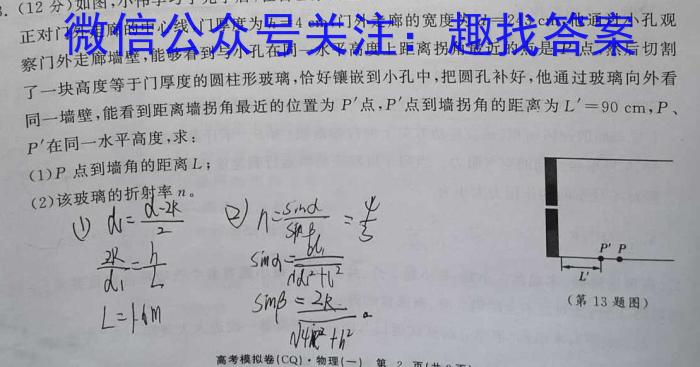 (12 分)如图,小伟
正对门 的中心线,门厚度为 h=4 cm,门外走廊的宽度为 d=243 cm,他通过小孔观
微信公众号关注：趣找答案
察门外走廊墙壁,能够看到与小孔在同一水平高度上距离拐角最近的点是 P 点,然后切割
了一块高度等于门厚度的圆柱形玻璃,恰好镶嵌到小孔中,把圆孔补好,他通过玻璃向外看
同一墙壁,能看到距离墙拐角最近的位置为 P′点,P′点到墙拐角的距离为 L′=90 cm,P、
P′在同一水平高度,求:
(1)P 点到墙角的距离 L;
(2)该玻璃的折射率 n。
(1) d₁=(d-2R)/2
2R/d₁=h/L
L=1.6m
(2) n=sinα/sinβ
sinα=
sinβ=2R/√(4R²+h²)
P′ P
L′
(第 13 题图)
高考模拟卷(CQ)·物理(一) 第 2 页